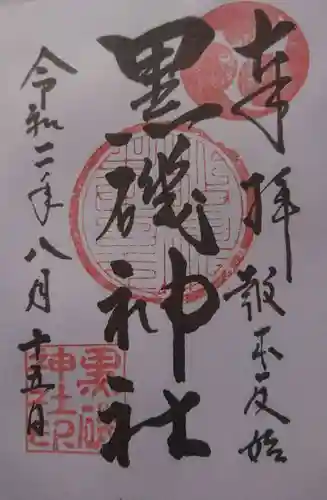 奉拝
報本反始
黒磯神社
令和二年八月十五日
黒磯
神社印